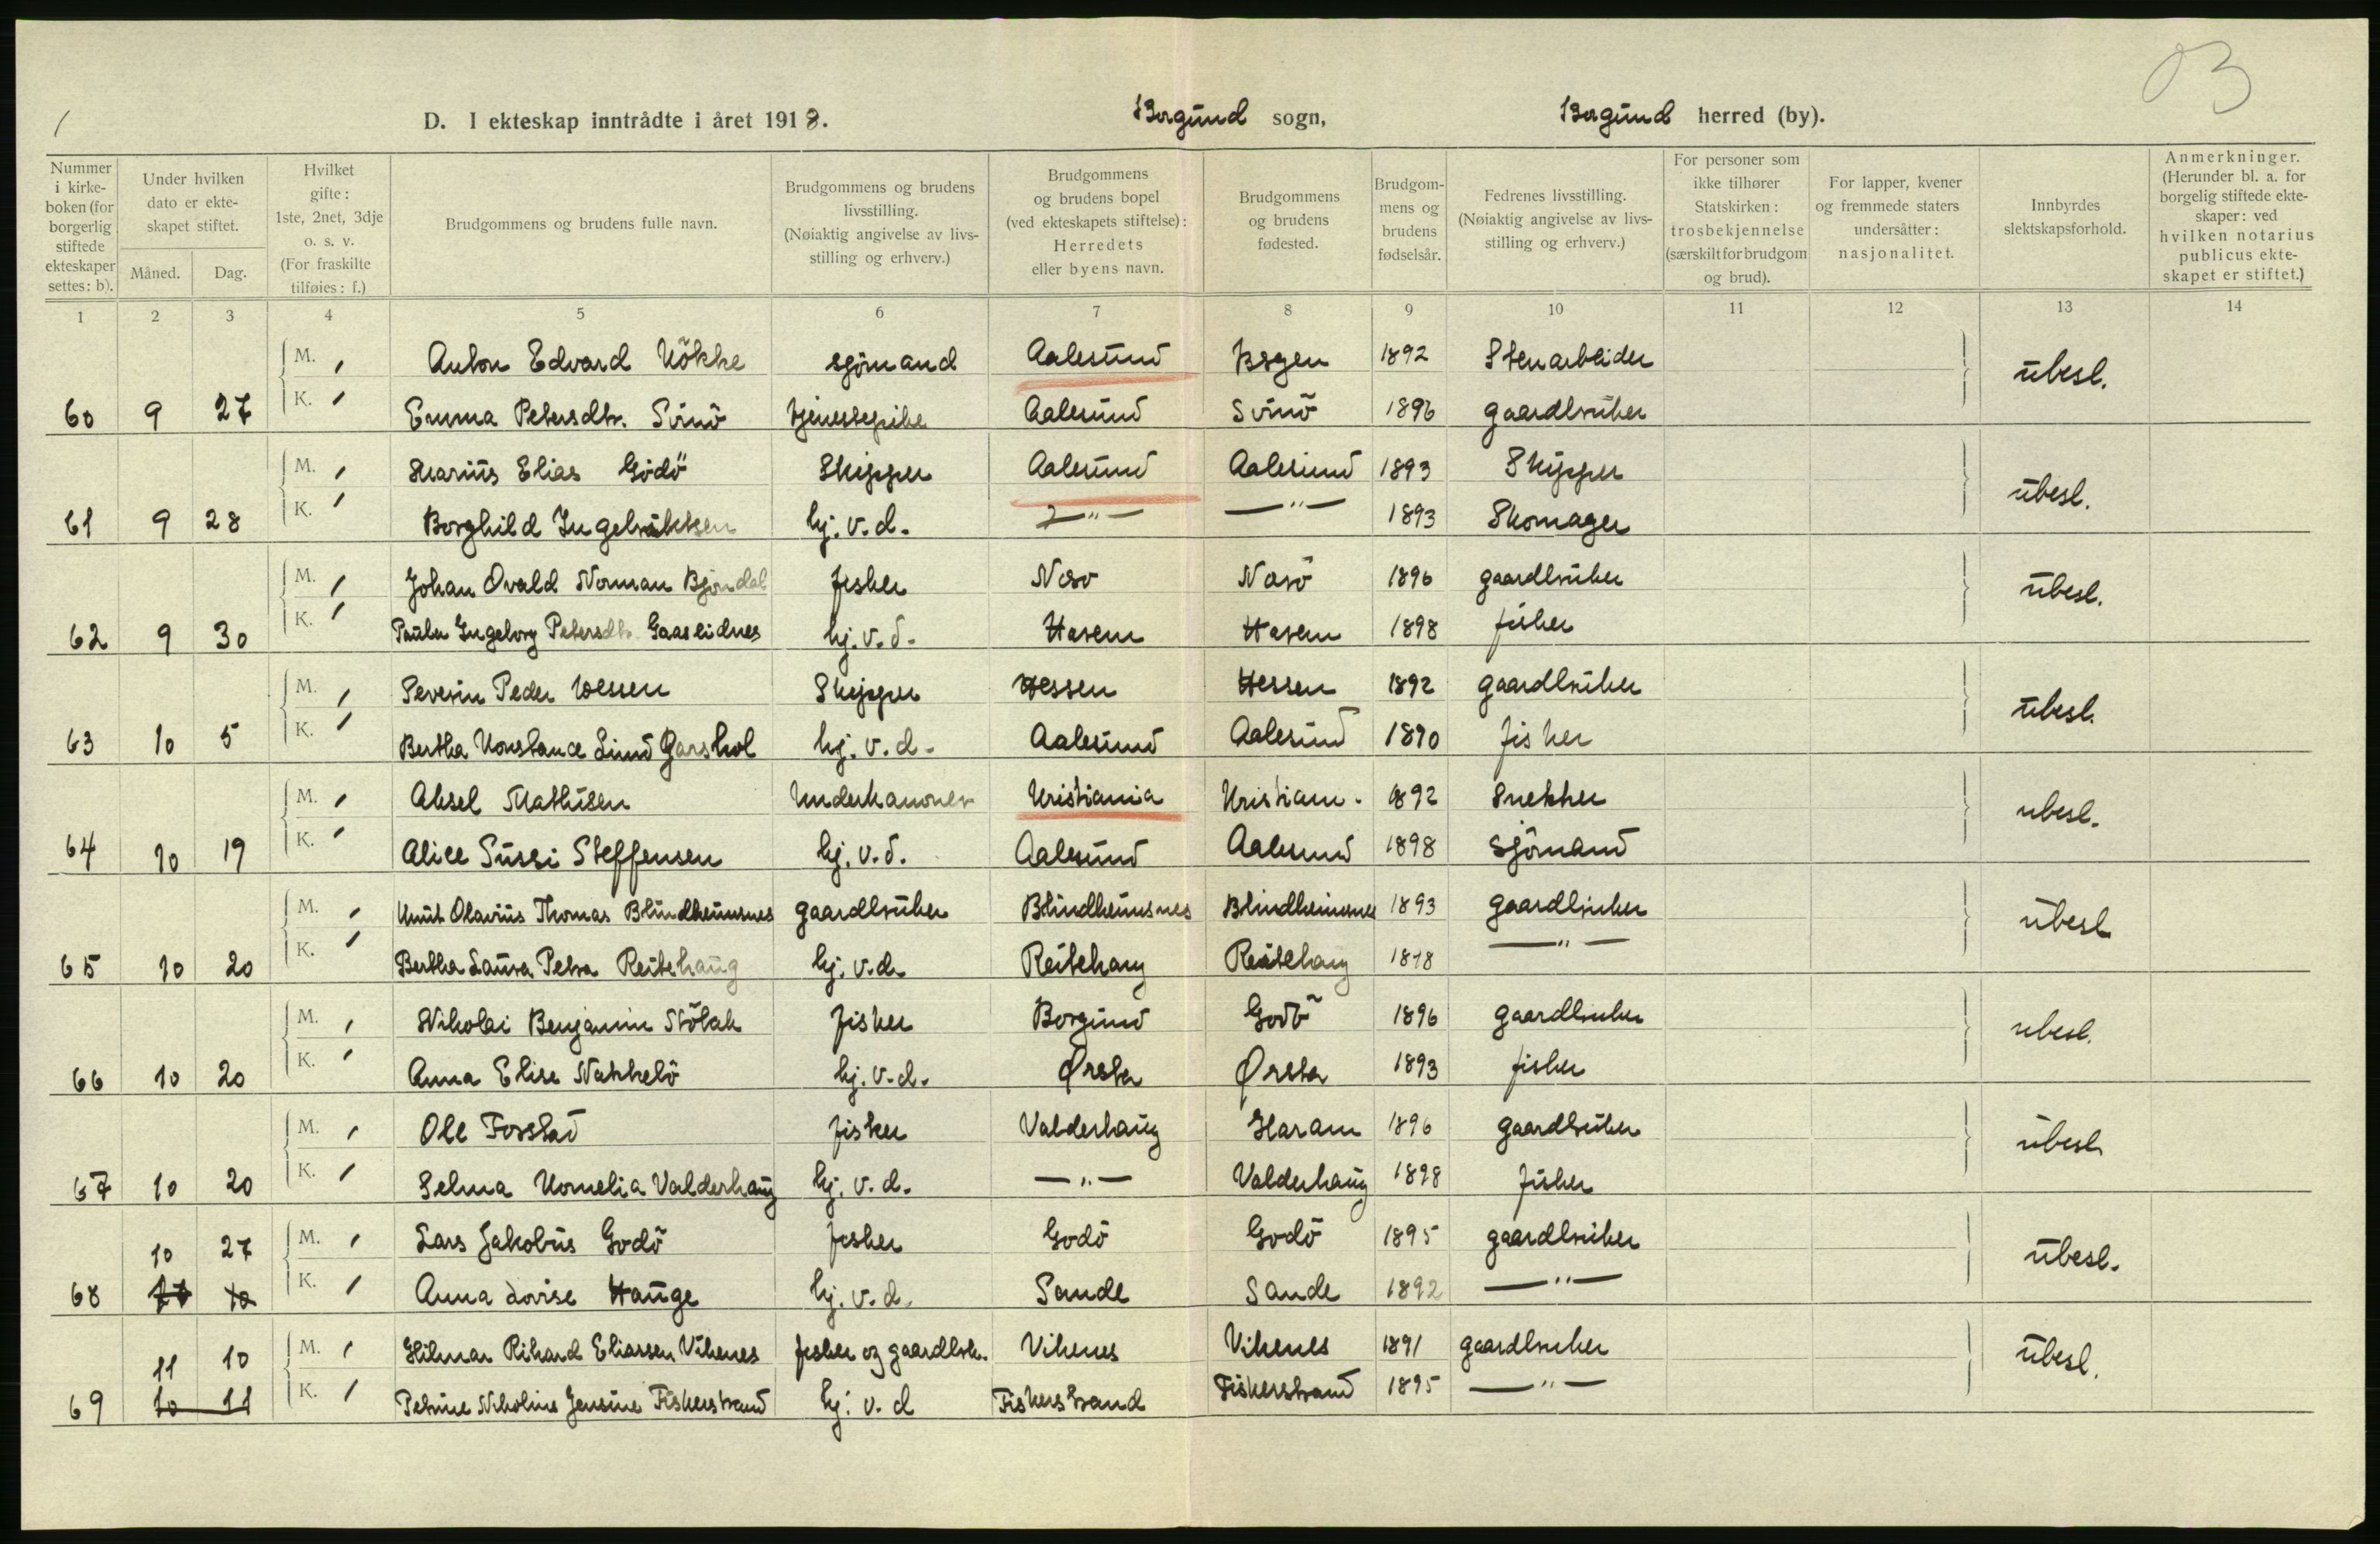 03
D. I ekteskap inntrådte i året 1918. Borgund sogn, Borgund herred (by).
Nummer i kirkeboken (for borgerlig stiftede ekteskaper settes: b).
Under hvilken dato er ekteskapet stiftet.
Måned. Dag.
Hvilket gifte: 1ste, 2net, 3dje o. s. v. (For fraskilte tilføies: f.)
Brudgommens og brudens fulle navn.
Brudgommens og brudens livsstilling. (Nøiaktig angivelse av livsstilling og erhverv.)
Brudgommens og brudens bopel (ved ekteskapets stiftelse): Herredets eller byens navn.
Brudgommens og brudens fødested.
Brudgommens og brudens fødselsår.
Fedrenes livsstilling. (Nøiaktig angivelse av livsstilling og erhverv.)
For personer som ikke tilhører Statskirken: trosbekjennelse (særskilt for brudgom og brud).
For lapper, kvener og fremmede staters undersåtter: nasjonalitet.
Innbyrdes slektskapsforhold.
Anmerkninger. (Herunder bl. a. for borgelig stiftede ekteskaper: ved hvilken notarius publicus ekteskapet er stiftet.)
1 2 3 4 5 6 7 8 9 10 11 12 13 14
M. / Anton Edvard Kökke sjömand Aalesund 1892 Stenarbeider ubesl.
60 9 27 K. / Emma Petersdtr. Svinö tjenestepike Aalesund Svinö 1896 gaardbruker
M. / Marius Elias Godö Skipper Aalesund Aalesund 1893 Skipper ubesl.
61 9 28 K. / Borghild Ingebriktsen hj. v. d. —"— —"— 1893 Skomager
M. / Johan Ovald Norman Bjöndal fisker Nosö 1896 gaardbruker ubesl.
62 9 30 K. / Paula Ingeborg Petersdtr. Gaaseidnes hj. v. d. Hasem Hasem 1898 fisker
M. / Severin Peder Hessen Skipper Hessen Hessen 1892 gaardbruker ubesl.
63 10 5 K. / Bertha Konstance Lind Garshol hj. v. d. Aalesund Aalesund 1890 fisker
M. / Aksel Mathisen Underkanoner Kristiania Kristian. 1892 Snekker ubesl.
64 10 19 K. / Alice Sussi Steffensen hj. v. d. Aalesund Aalesund 1898 sjömand
M. / Knut Olavius Thomas Blindheimsnes gaardbruker Blindheimsnes Blindheimsnes 1893 gaardbruker ubesl
65 10 20 K. / Bertha Laura Petra Reitehaug hj. v. d. Reitehaug Reitehaug —"—
M. / Nikolai Benjamin Stöbak fisker Borgund Godö 1896 gaardbruker ubesl.
66 10 20 K. / Anna Elise Nakkelö hj. v. d. Ørsta Ørsta 1893 fisker
M. / Ole Fosstad fisker Valderhaug Haram 1896 gaardbruker ubesl
67 10 20 K. / Selma Kornelia Valderhaug hj. v. d. —"— Valderhaug 1898 fisker
10 27 M. / Lars Jakobus Godö fisker Godö Godö 1895 gaardbruker ubesl.
68 27 10 K. / Anna Lovise Hauge hj. v. d. Sande Sande 1892 —"—
11 10 M. / Hilmar Rikard Eliassen Vikenes fisker og gaardbr. Vikenes Vikenes 1891 gaardbruker ubesl.
69 10 11 K. / Petrine Nikoline Jensine Fiskerstrand hj. v. d Fiskerstrand Fiskerstrand 1895 —"—